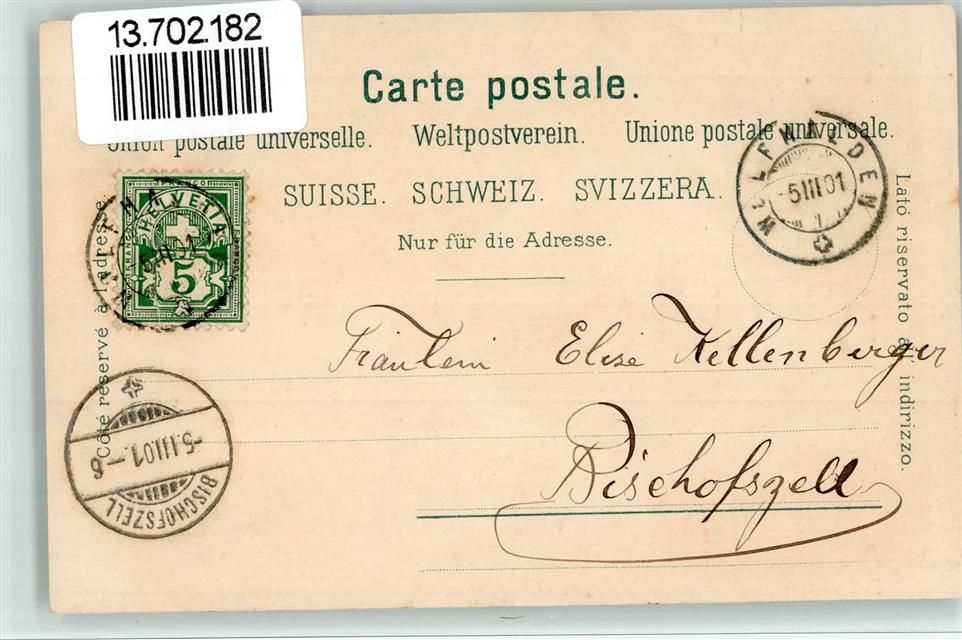 13.702.182
Carte postale.
Union postale universelle. Weltpostverein. Unione postale universale.
SUISSE. SCHWEIZ. SVIZZERA.
Nur für die Adresse.
Côté réservé à l'adresse
Lato riservato all' indirizzo.
HELVETIA
FRANCO
5
5 III 01
WOLFHALDEN
-5 III 01
Fräulein Elise Kellenberger
Bischofszell
-5.III.01.-6
BISCHOFSZELL